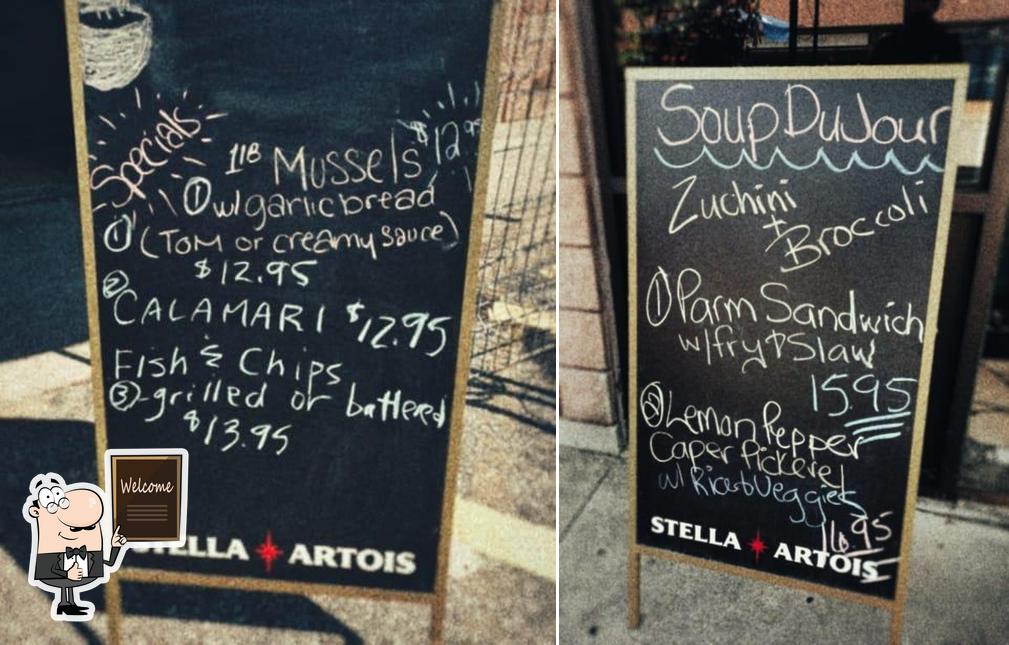 Specials
1lB MUSSELS $12.95
① w/ garlic bread
① (TOM or creamy sauce)
$12.95
②
CALAMARI $12.95
Fish & Chips
③-grilled or battered
$13.95
Welcome
STELLA ARTOIS
Soup DuJour
Zuchini
+ Broccoli
① Parm Sandwich
w/fry + Slaw
15.95
② Lemon Pepper
Caper Pickerel
w/ Rice + Veggies
16.95
STELLA ARTOIS